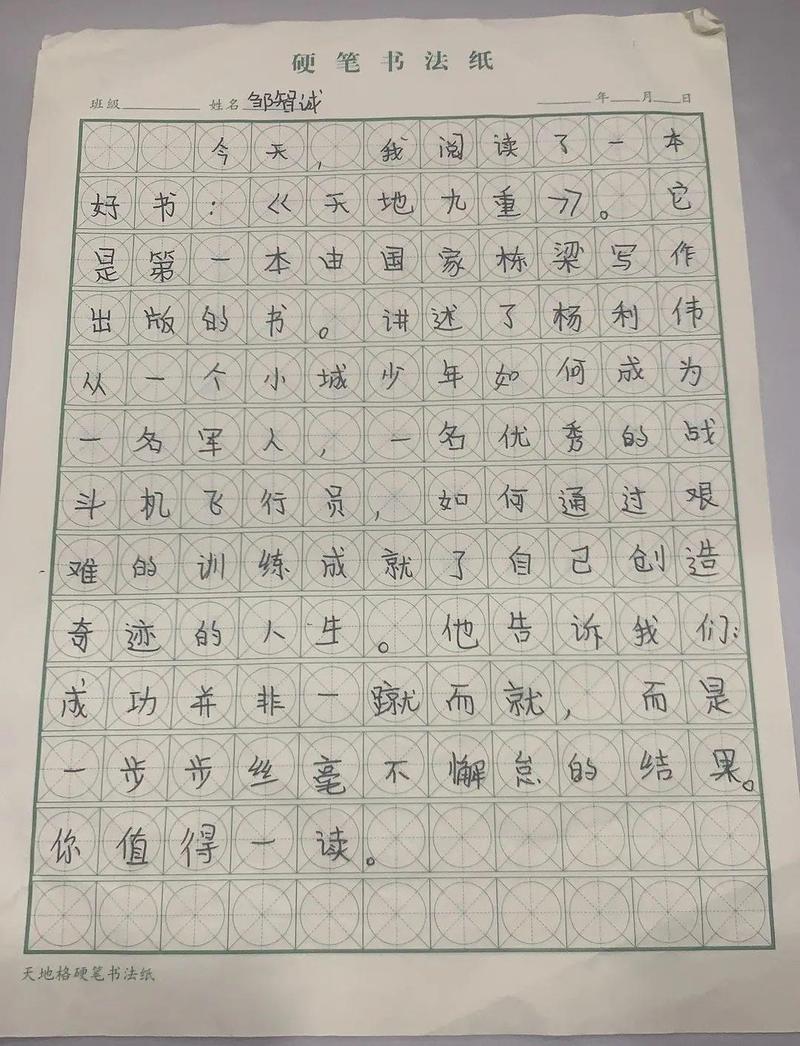 硬笔书法纸
班级 姓名 邹智诚 年 月 日
今天，我阅读了一本
好书：《天地九重》。它
是第一本由国家栋梁写作
出版的书。讲述了杨利伟
从一个小城少年如何成为
一名军人，一名优秀的战
斗机飞行员，如何通过艰
难的训练成就了自己创造
奇迹的人生。他告诉我们：
成功并非一蹴而就，而是
一步步丝毫不懈怠的结果。
你值得一读。
天地格硬笔书法纸